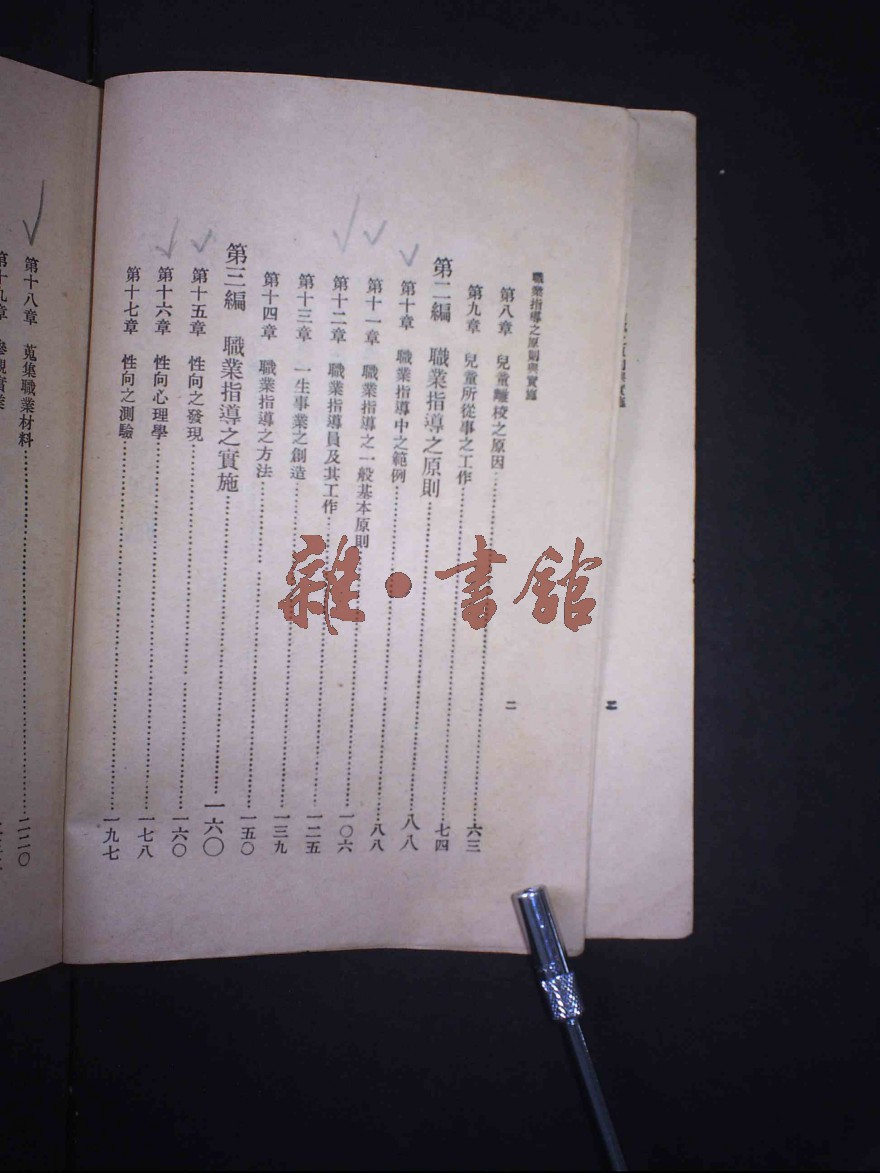 職業指導之原則與實施
第八章 兒童離校之原因……六三
第九章 兒童所從事之工作……七四
第二編 職業指導之原則……八八
第十章 職業指導中之範例……八八
第十一章 職業指導之一般基本原則……一〇六
第十二章 職業指導員及其工作……一二五
第十三章 一生事業之創造……一三九
第十四章 職業指導之方法……一五〇
第三編 職業指導之實施……一六〇
第十五章 性向之發現……一六〇
第十六章 性向心理學……一七八
第十七章 性向之測驗……一九七
二
第十八章 蒐集職業材料……二二〇
第十九章 參觀實業
三
雜·書館